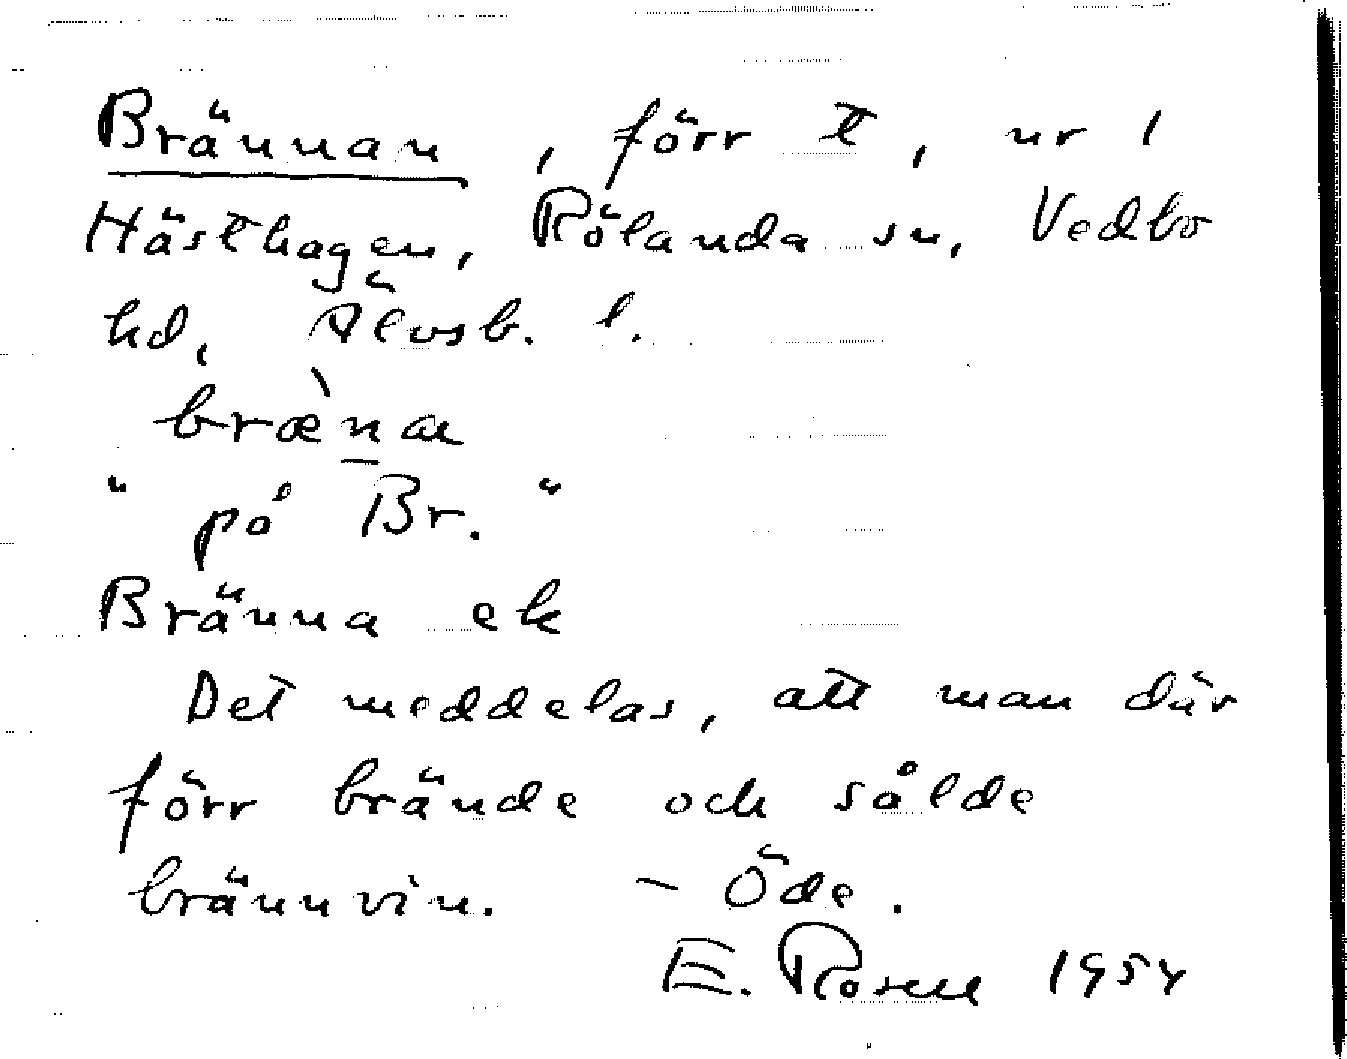 Brännan, förr tt, nr 1
Hästhagen, Rölanda sn, Vedbo
hd, Älvsb. l.
bræ̀n̲ar
"på Br."
Bränna ek
Det meddelas, att man där
förr brände och sålde
brännvin. – Öde.
E. Rosell 1954